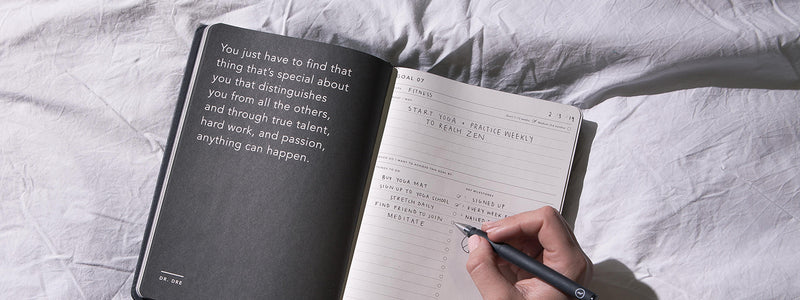 You just have to find that
thing that's special about
you that distinguishes
you from all the others,
and through true talent,
hard work, and passion,
anything can happen.
DR. DRE
GOAL 07
FITNESS
2 / 5 / 19
START YOGA + PRACTICE WEEKLY
TO REACH ZEN
BUY YOGA MAT
SIGN UP TO YOGA SCHOOL
STRETCH DAILY
FIND FRIEND TO JOIN
MEDITATE
KEY MILESTONES
SIGNED UP
EVERY WEEK
NAILED